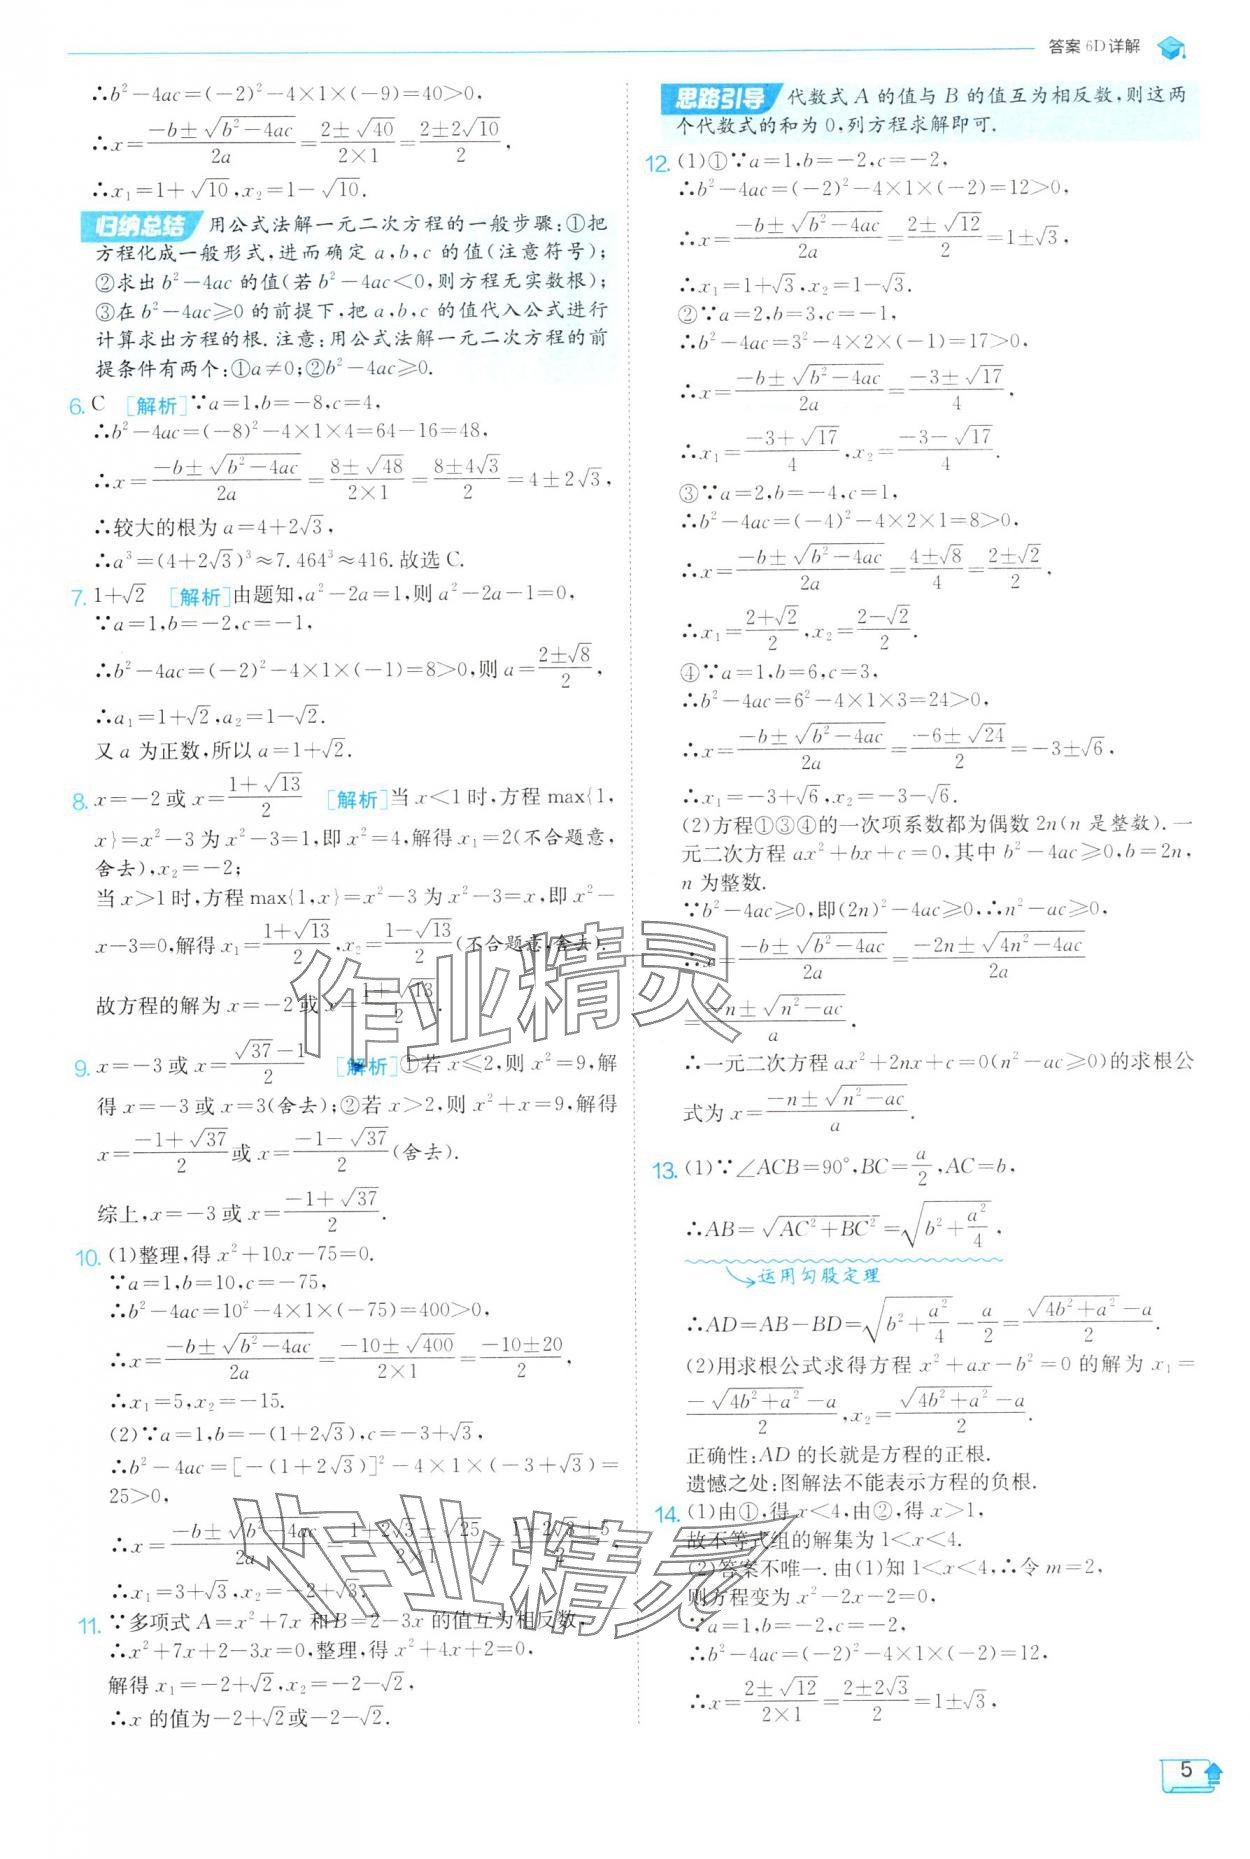 答案 6D详解
∴b²－4ac＝(－2)²－4×1×(－9)＝40＞0,
∴x＝(－b±√(b²－4ac))/2a＝(2±√40)/(2×1)＝(2±2√10)/2,
∴x₁＝1＋√10,x₂＝1－√10.
归纳总结 用公式法解一元二次方程的一般步骤:①把
方程化成一般形式,进而确定 a,b,c 的值(注意符号);
②求出 b²－4ac 的值(若 b²－4ac＜0,则方程无实数根);
③在 b²－4ac≥0 的前提下,把 a,b,c 的值代入公式进行
计算求出方程的根. 注意:用公式法解一元二次方程的前
提条件有两个:①a≠0;②b²－4ac≥0.
6. C [解析]∵a＝1,b＝－8,c＝4,
∴b²－4ac＝(－8)²－4×1×4＝64－16＝48,
∴x＝(－b±√(b²－4ac))/2a＝(8±√48)/(2×1)＝(8±4√3)/2＝4±2√3,
∴较大的根为 a＝4＋2√3,
∴a³＝(4＋2√3)³≈7.464³≈416. 故选 C.
7. 1＋√2 [解析]由题知,a²－2a＝1,则 a²－2a－1＝0,
∵a＝1,b＝－2,c＝－1,
∴b²－4ac＝(－2)²－4×1×(－1)＝8＞0,则 a＝(2±√8)/2,
∴a₁＝1＋√2,a₂＝1－√2.
又 a 为正数,所以 a＝1＋√2.
8. x＝－2 或 x＝(1＋√13)/2 [解析]当 x＜1 时,方程 max{1,
x}＝x²－3 为 x²－3＝1,即 x²＝4,解得 x₁＝2(不合题意,
舍去),x₂＝－2;
当 x＞1 时,方程 max{1,x}＝x²－3 为 x²－3＝x,即 x²－
x－3＝0,解得 x₁＝(1＋√13)/2,x₂＝(1－√13)/2(不合题意,舍去).
故方程的解为 x＝－2 或 x＝(1＋√13)/2.
9. x＝－3 或 x＝(√37－1)/2 [解析]①若 x≤2,则 x²＝9,解
得 x＝－3 或 x＝3(舍去);②若 x＞2,则 x²＋x＝9,解得
x＝(－1＋√37)/2 或 x＝(－1－√37)/2(舍去).
综上,x＝－3 或 x＝(－1＋√37)/2.
10. (1)整理,得 x²＋10x－75＝0.
∵a＝1,b＝10,c＝－75,
∴b²－4ac＝10²－4×1×(－75)＝400＞0,
∴x＝(－b±√(b²－4ac))/2a＝(－10±√400)/(2×1)＝(－10±20)/2,
∴x₁＝5,x₂＝－15.
(2)∵a＝1,b＝－(1＋2√3),c＝－3＋√3,
∴b²－4ac＝[－(1＋2√3)]²－4×1×(－3＋√3)＝
25＞0,
∴x＝(－b±√(b²－4ac))/2a＝(1＋2√3±√25)/(2×1)＝(1＋2√3±5)/2,
∴x₁＝3＋√3,x₂＝－2＋√3.
11. ∵多项式 A＝x²＋7x 和 B＝2－3x 的值互为相反数,
∴x²＋7x＋2－3x＝0,整理,得 x²＋4x＋2＝0,
解得 x₁＝－2＋√2,x₂＝－2－√2,
∴x 的值为－2＋√2或－2－√2.
思路引导 代数式 A 的值与 B 的值互为相反数,则这两
个代数式的和为 0,列方程求解即可.
12. (1)①∵a＝1,b＝－2,c＝－2,
∴b²－4ac＝(－2)²－4×1×(－2)＝12＞0,
∴x＝(－b±√(b²－4ac))/2a＝(2±√12)/2＝1±√3,
∴x₁＝1＋√3,x₂＝1－√3.
②∵a＝2,b＝3,c＝－1,
∴b²－4ac＝3²－4×2×(－1)＝17＞0,
∴x＝(－b±√(b²－4ac))/2a＝(－3±√17)/4,
∴x₁＝(－3＋√17)/4,x₂＝(－3－√17)/4.
③∵a＝2,b＝－4,c＝1,
∴b²－4ac＝(－4)²－4×2×1＝8＞0,
∴x＝(－b±√(b²－4ac))/2a＝(4±√8)/4＝(2±√2)/2,
∴x₁＝(2＋√2)/2,x₂＝(2－√2)/2.
④∵a＝1,b＝6,c＝3,
∴b²－4ac＝6²－4×1×3＝24＞0,
∴x＝(－b±√(b²－4ac))/2a＝(－6±√24)/2＝－3±√6,
∴x₁＝－3＋√6,x₂＝－3－√6.
(2)方程①③④的一次项系数都为偶数 2n(n 是整数). 一
元二次方程 ax²＋bx＋c＝0,其中 b²－4ac≥0,b＝2n,
n 为整数.
∵b²－4ac≥0,即(2n)²－4ac≥0,∴n²－ac≥0,
∴x＝(－b±√(b²－4ac))/2a＝(－2n±√(4n²－4ac))/2a
＝(－n±√(n²－ac))/a.
∴一元二次方程 ax²＋2nx＋c＝0(n²－ac≥0)的求根公
式为 x＝(－n±√(n²－ac))/a.
13. (1)∵∠ACB＝90°,BC＝a/2,AC＝b,
∴AB＝√(AC²＋BC²)＝√(b²＋a²/4),
运用勾股定理
∴AD＝AB－BD＝√(b²＋a²/4)－a/2＝(√(4b²＋a²)－a)/2.
(2)用求根公式求得方程 x²＋ax－b²＝0 的解为 x₁＝
(－√(4b²＋a²)－a)/2,x₂＝(√(4b²＋a²)－a)/2.
正确性:AD 的长就是方程的正根.
遗憾之处:图解法不能表示方程的负根.
14. (1)由①,得 x＜4,由②,得 x＞1,
故不等式组的解集为 1＜x＜4.
(2)答案不唯一. 由(1)知 1＜x＜4,∴令 m＝2,
则方程变为 x²－2x－2＝0,
∵a＝1,b＝－2,c＝－2,
∴b²－4ac＝(－2)²－4×1×(－2)＝12,
∴x＝(2±√12)/(2×1)＝(2±2√3)/2＝1±√3,
5
作业精灵
作业精灵